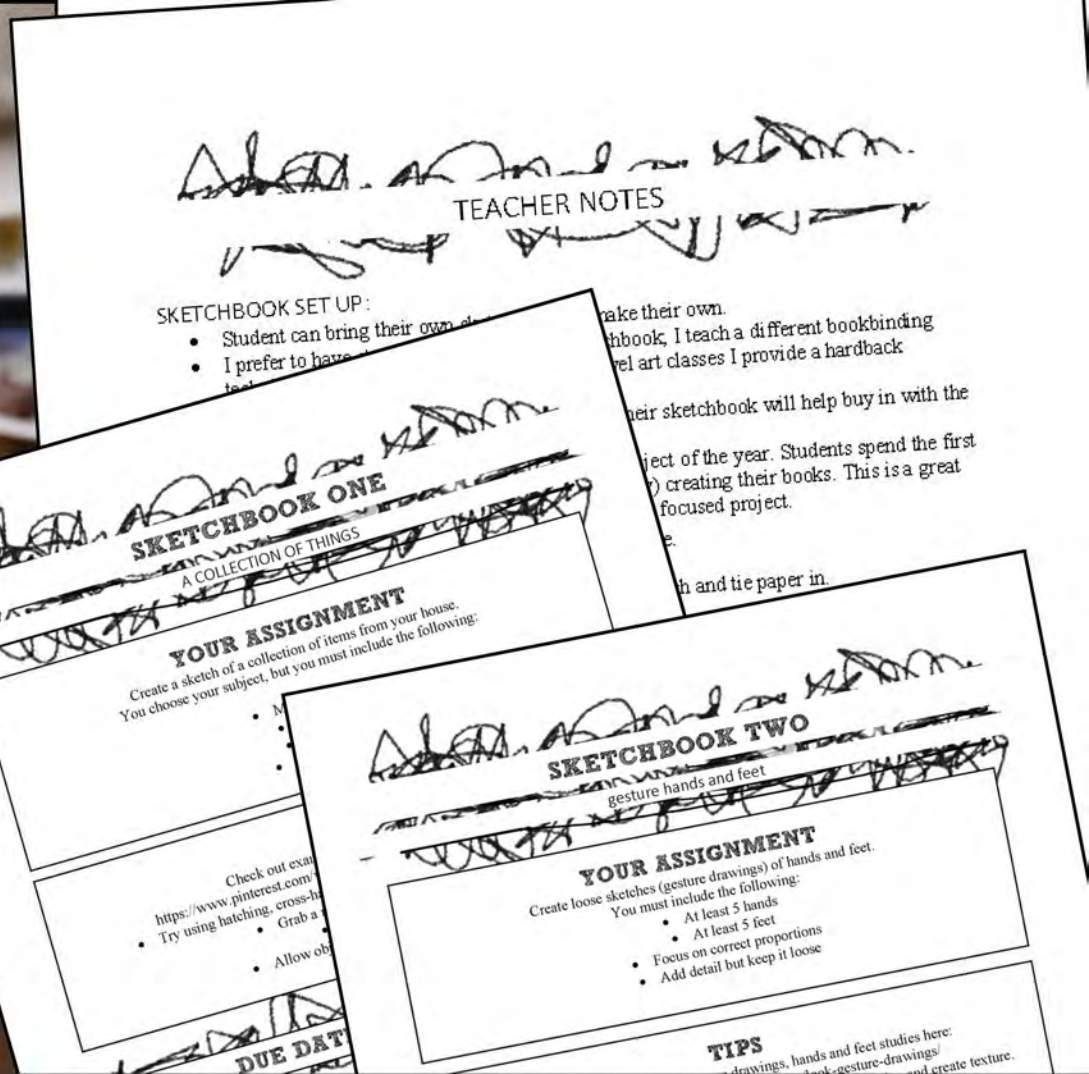 TEACHER NOTES
SKETCHBOOK SET UP:
• Student can bring their own make their own.
• I prefer to have hbook, I teach a different bookbinding
el art classes I provide a hardback
heir sketchbook will help buy in with the
ject of the year. Students spend the first
) creating their books. This is a great
focused project.
e.
h and tie paper in.
SKETCHBOOK ONE
A COLLECTION OF THINGS
YOUR ASSIGNMENT
Create a sketch of a collection of items from your house.
You choose your subject, but you must include the following:
• M
•
•
Check out exa
https://www.pinterest.com/
• Try using hatching, cross-h
• Grab a
• Allow obj
DUE DAT
SKETCHBOOK TWO
gesture hands and feet
YOUR ASSIGNMENT
Create loose sketches (gesture drawings) of hands and feet.
You must include the following:
• At least 5 hands
• At least 5 feet
• Focus on correct proportions
• Add detail but keep it loose
TIPS
drawings, hands and feet studies here:
ok-gesture-drawings/
and create texture.